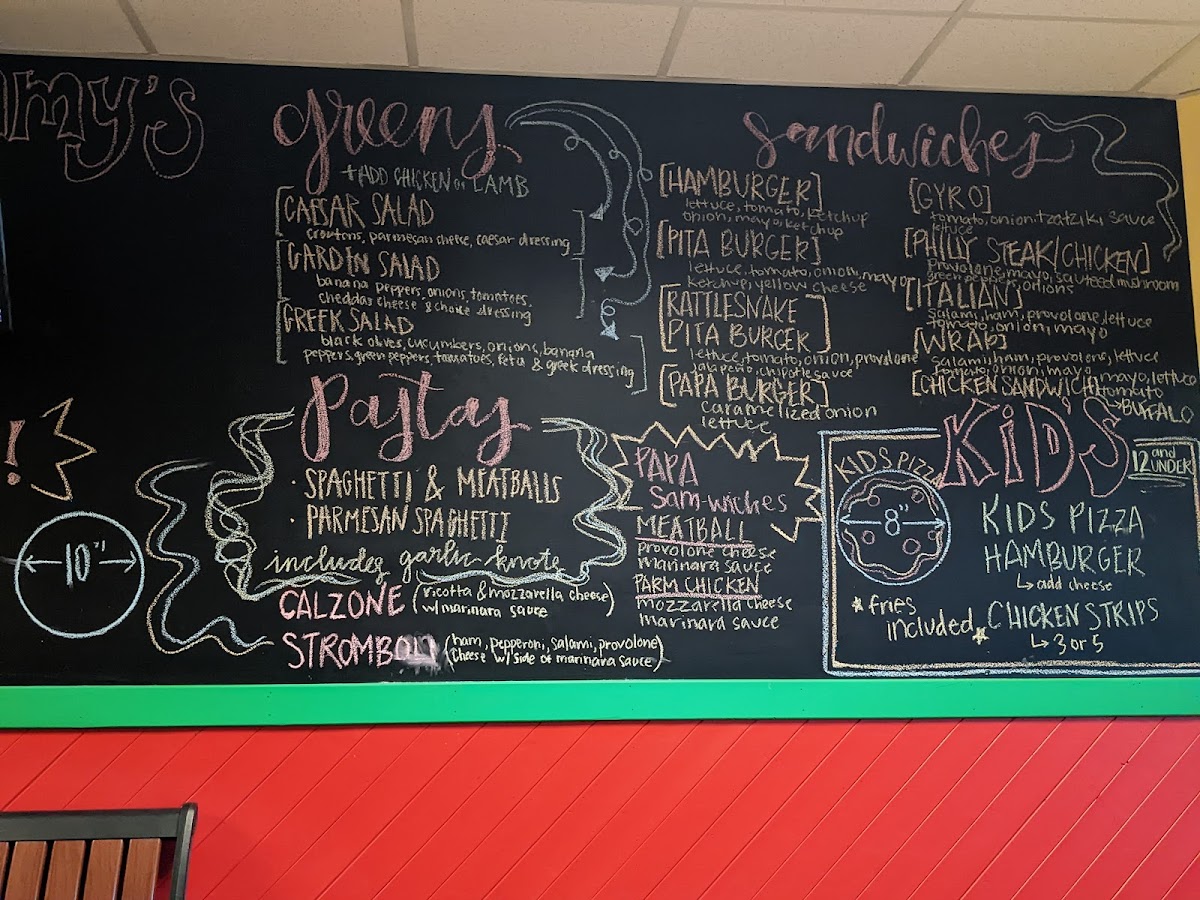 my's
greens
+ADD CHICKEN or LAMB
CAESAR SALAD
croutons, parmesan cheese, caesar dressing
GARDEN SALAD
banana peppers, onions, tomatoes,
cheddar cheese & choice dressing
GREEK SALAD
black olives, cucumbers, onions, banana
peppers, green peppers, tomatoes, feta & greek dressing
Pastas
· SPAGHETTI & MEATBALLS
· PARMESAN SPAGHETTI
includes garlic knots
CALZONE (ricotta & mozzarella cheese)
w/ marinara sauce
STROMBOLI (ham, pepperoni, salami, provolone)
cheese w/ side of marinara sauce
!
10"
sandwiches
[HAMBURGER]
lettuce, tomato, ketchup
onion, mayo, ketchup
[PITA BURGER]
lettuce, tomato, onion, mayo
ketchup, yellow cheese
[RATTLESNAKE
PITA BURGER]
lettuce, tomato, onion, provolone
jalapeño, chipotle sauce
[PAPA BURGER]
caramelized onion
lettuce
[GYRO]
tomato, onion tzatziki sauce
lettuce
[PHILLY STEAK/CHICKEN]
provolone, mayo, sauteed mushroom
green peppers, onions
[ITALIAN]
salami, ham, provolone, lettuce
tomato, onion, mayo
[WRAP]
salami, ham, provolone, lettuce
tomato, onion, mayo
[CHICKEN SANDWICH] mayo, lettuce
tomato
BUFFALO
PAPA
Sam-wiches
MEATBALL
provolone cheese
marinara sauce
PARM CHICKEN
mozzarella cheese
marinara sauce
KID'S
12 and
UNDER
KIDS PIZZA
8"
KIDS PIZZA
HAMBURGER
add cheese
*fries
included*
CHICKEN STRIPS
3 or 5